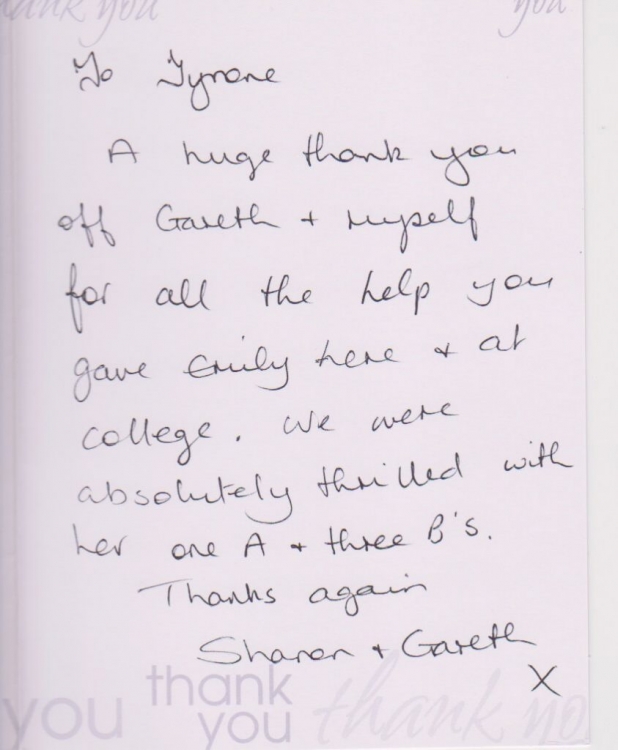 thank you
you
To Tyrone
A huge thank you
off Gareth + myself
for all the help you
gave Emily here + at
college. We were
absolutely thrilled with
her one A + three B's.
Thanks again
Sharon + Gareth
X
you thank you thank yo